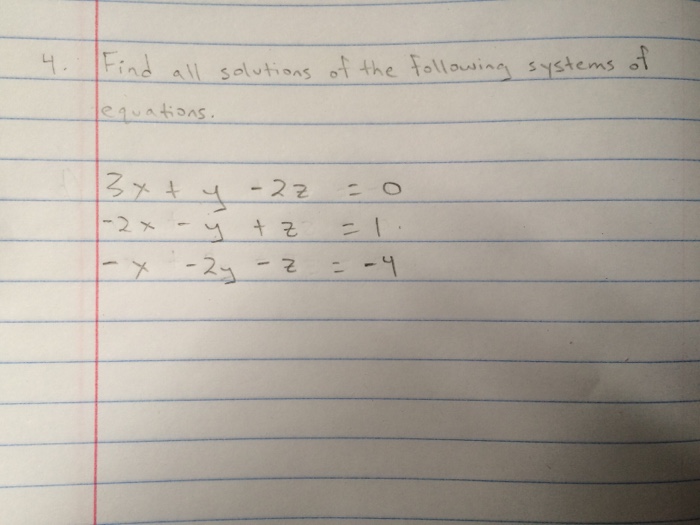 4. Find all solutions of the following systems of
equations.
3x + y - 2z = 0
-2x - y + z = 1.
-x -2y - z = -4